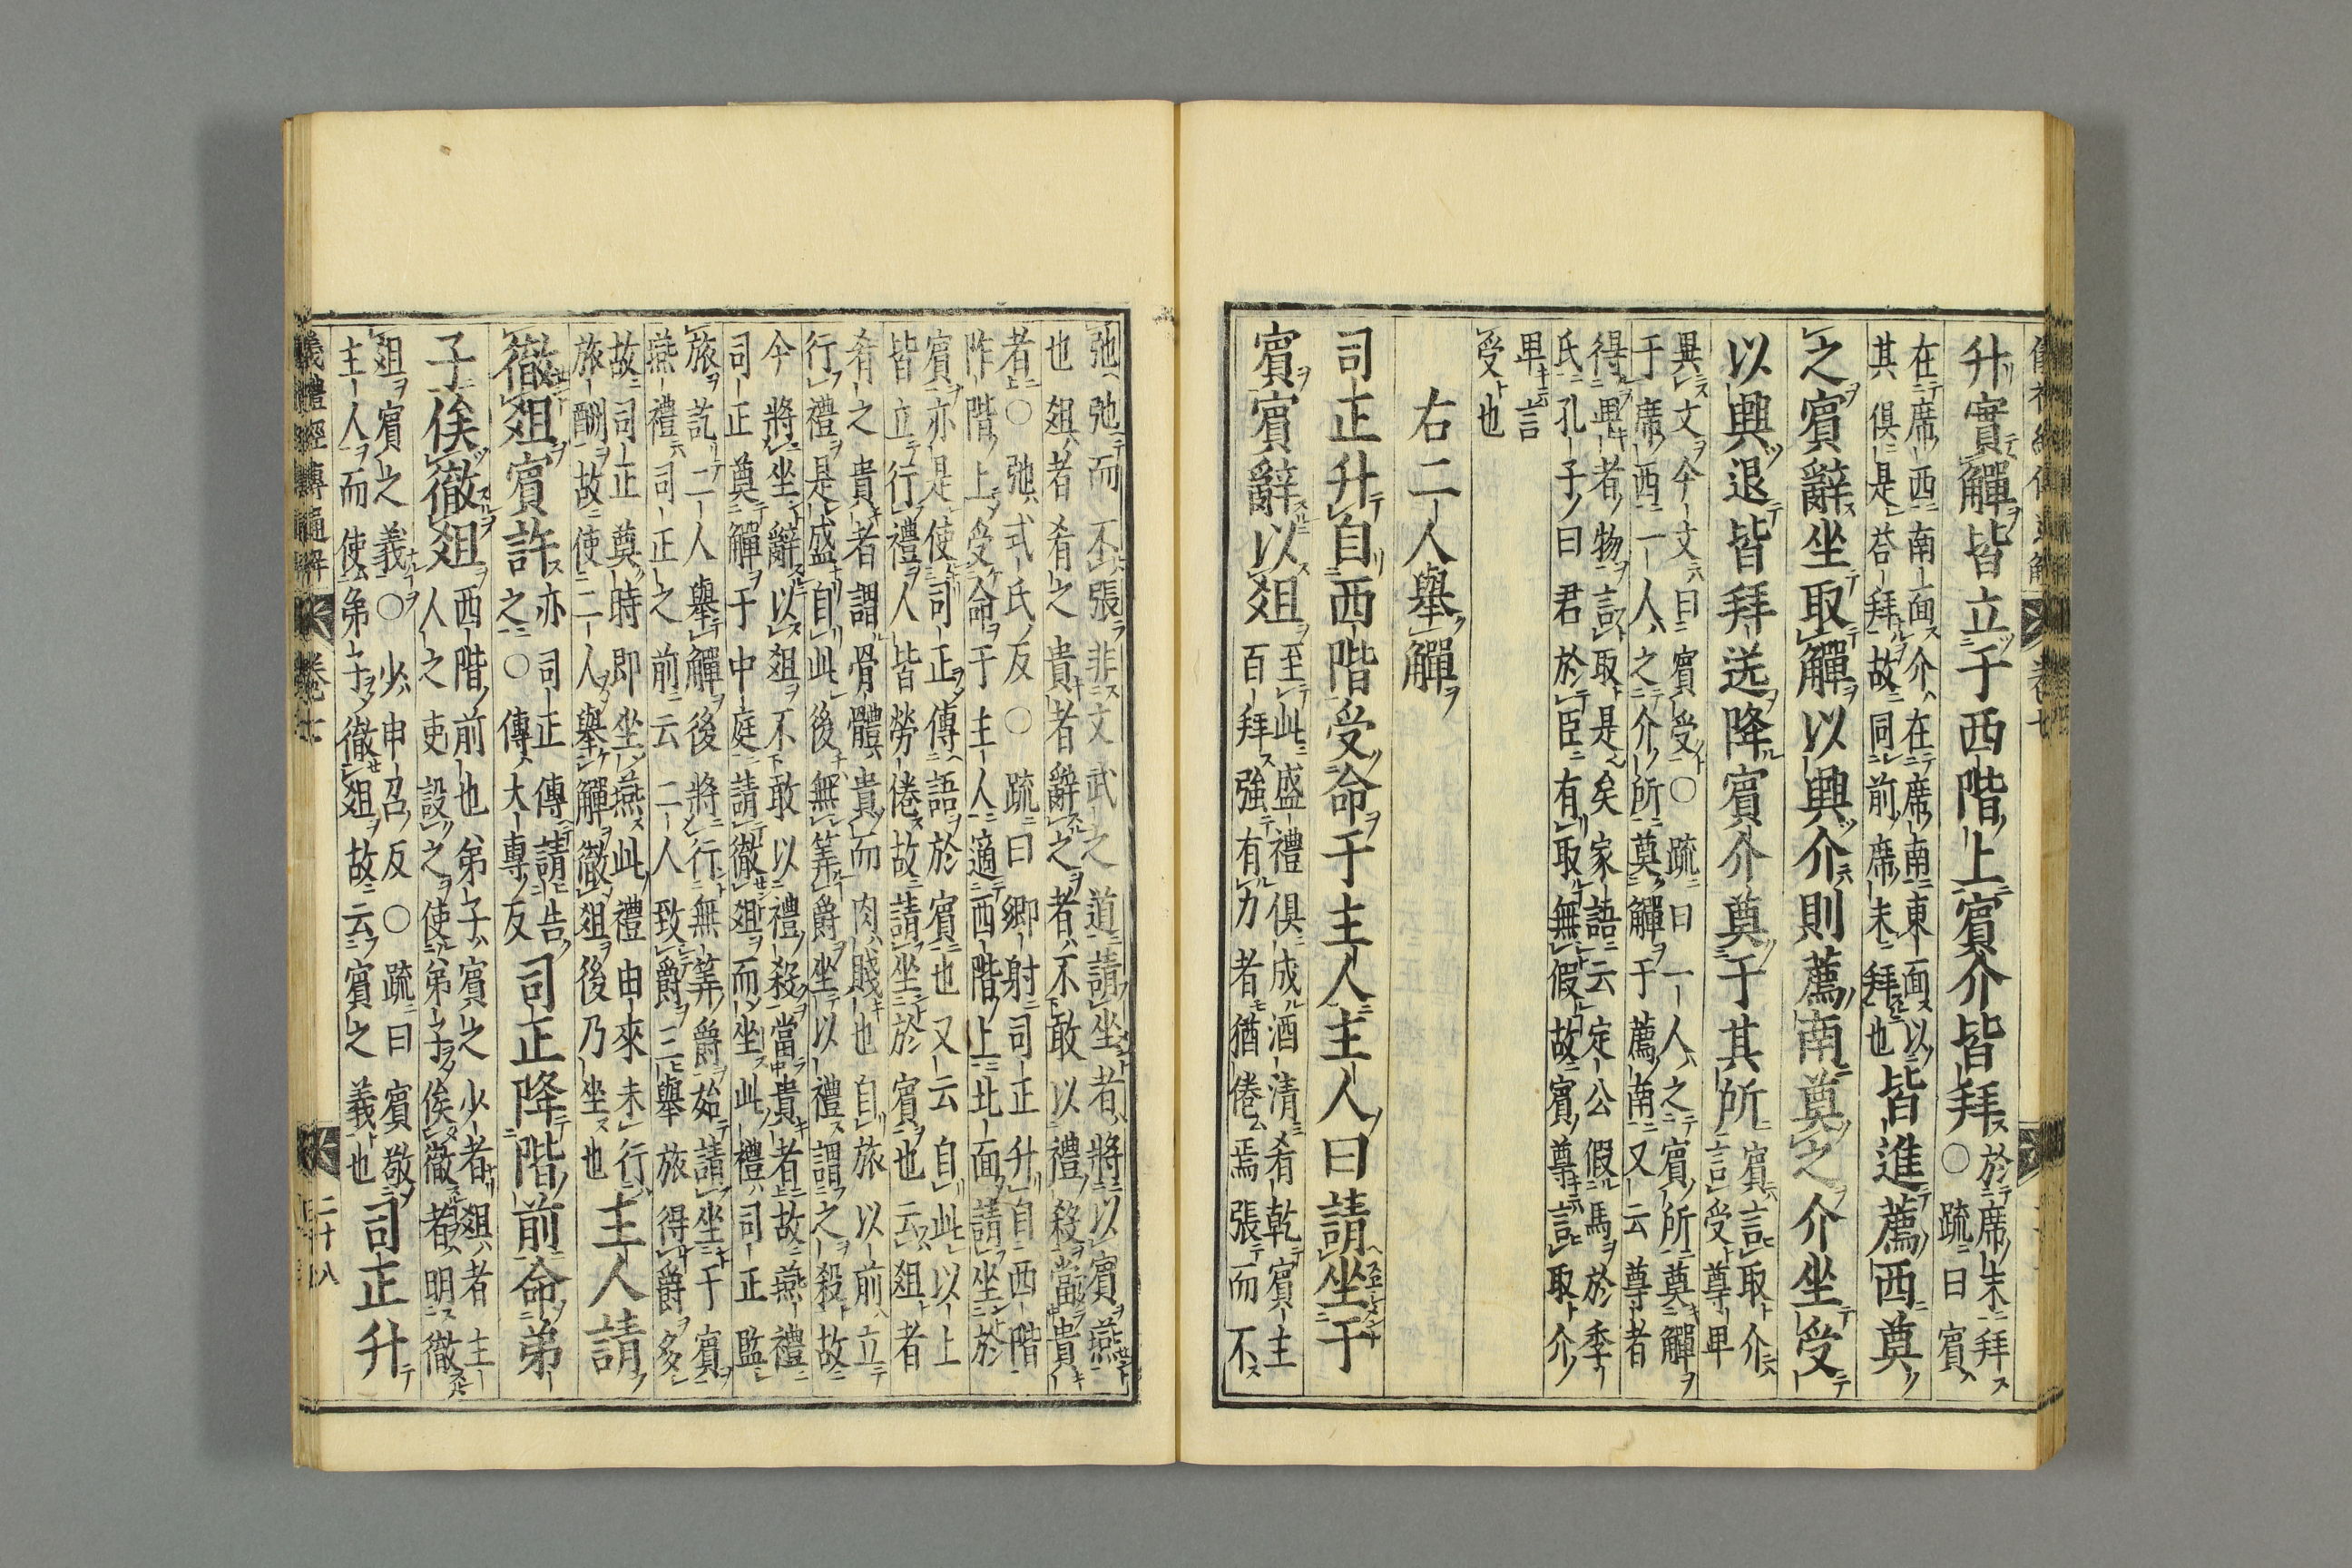 升實觶皆立于西階上賓介皆拜於席末拜
○疏曰賓
在席西南面介在席南東面以
其俱是荅拜故同前席末拜也皆進薦西奠
之賓辭坐取觶以興介則薦南奠之介坐受
以興退皆拜送降賓介奠于其所賓言取介
言受尊卑
異文今文曰賓受○疏曰一人之賓所奠觶
于席西一人之介所奠觶于薦南又云尊者
得卑者物言取是矣家語云定公假馬於季
氏孔子曰君於臣有取無假故賓尊言取介
卑言
受也
右二人舉觶
司正升自西階受命于主人主人曰請坐于
賓賓辭以俎至此盛禮俱成酒清肴乾賓主
百拜強有力者猶倦焉張而不
弛弛而不張非文武之道請坐者將以賓燕
也俎者肴之貴者辭之者不敢以禮殺當貴
者○弛式氏反○疏曰鄉射司正升自西階
阼階上受命于主人適西階上北面請坐於
賓亦是使司正傳語於賓也又云自此以上
皆立行禮人皆勞倦故請坐於賓也云俎者
肴之貴者謂骨體貴而肉賤也自旅以前立
行禮是盛自此後無筭爵坐以禮謂之殺故
今將坐辭以俎不敢以禮殺當貴者故燕禮
司正奠觶于中庭請徹俎而坐此禮司正監
旅訖二人舉觶後將行無筭爵始請坐于賓
燕禮司正之前云二人致爵三舉旅得爵多
故司正奠時即坐燕此禮由來未行
旅酬故使二人舉觶徹俎後乃坐也主人請
徹俎賓許亦司正傳請告
之○傳大專反司正降階前命弟
子俟徹俎西階前也弟子賓之少者俎者主
人之吏設之使弟子俟徹者明徹
俎賓之義○少申召反○疏曰賓敬
主人而使弟子徹俎故云賓之義也司正升
儀禮經傳通解 卷七 二十八